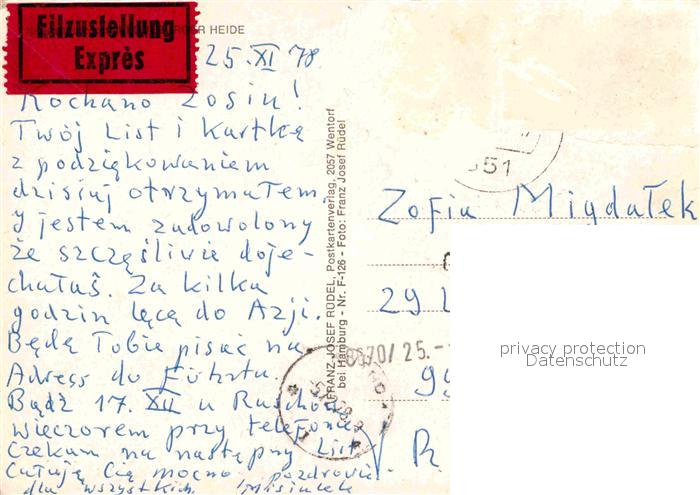 Eilzustellung
Exprès
HEIDE
25. XI 78
Kochano Zosiu!
Twój List i Kartkę
z podziękowaniem
dzisiaj otrzymałem.
y jestem zadowolony
że szczęśliwie doje-
chałaś. Za kilka
godzin lęcę do Azji.
Będę Tobie pisać na
Adress do Fürth.
Bądź 17. XII u
wieczorem przy telefonie
Czekam na następny List
Całuję Cię mocno pozdrowie
dla wszystkich
FRANZ JOSEF RÜDEL, Postkartenverlag, 2057 Wentorf
bei Hamburg - Nr. F-126 - Foto: Franz Josef Rüdel
51
8670/ 25.-
Zofia Migdałek
29
privacy protection
Datenschutz